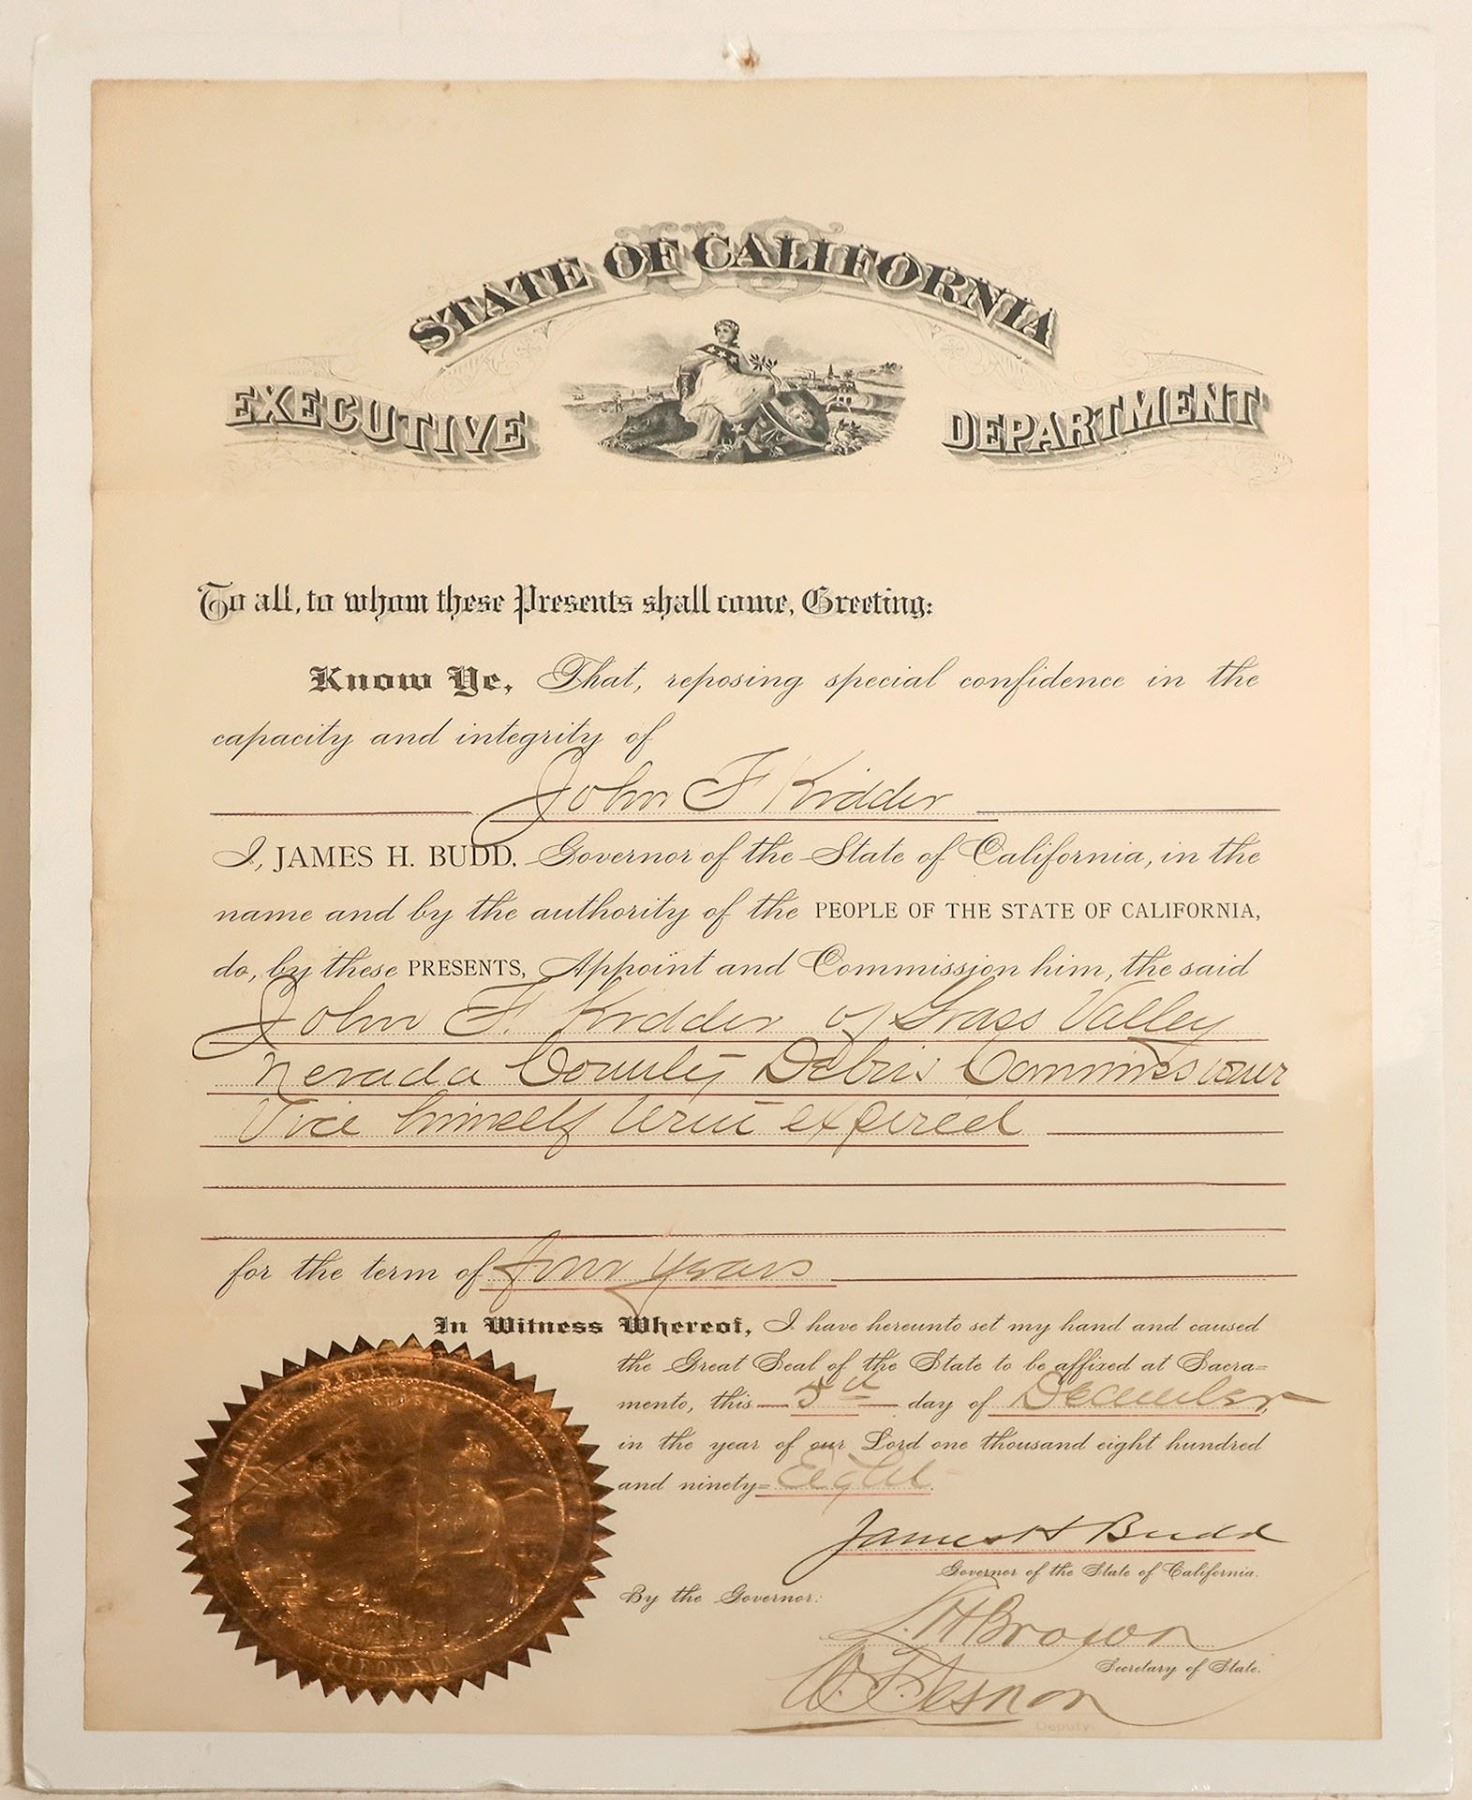 STATE OF CALIFORNIA
EXECUTIVE DEPARTMENT
To all, to whom these Presents shall come, Greeting:
Know Ye, That, reposing special confidence in the
capacity and integrity of
John F Kidder
I, JAMES H. BUDD, Governor of the State of California, in the
name and by the authority of the PEOPLE OF THE STATE OF CALIFORNIA,
do, by these PRESENTS, Appoint and Commission him, the said
John F. Kidder of Grass Valley
Nevada County Debris Commissioner
Vice himself term expired
for the term of four years
In Witness Whereof, I have hereunto set my hand and caused
the Great Seal of the State to be affixed at Sacra=
mento, this 5th day of December,
in the year of our Lord one thousand eight hundred
and ninety=Eight.
James H Budd
Governor of the State of California.
By the Governor:
L. H Brown
Secretary of State.
Deputy.